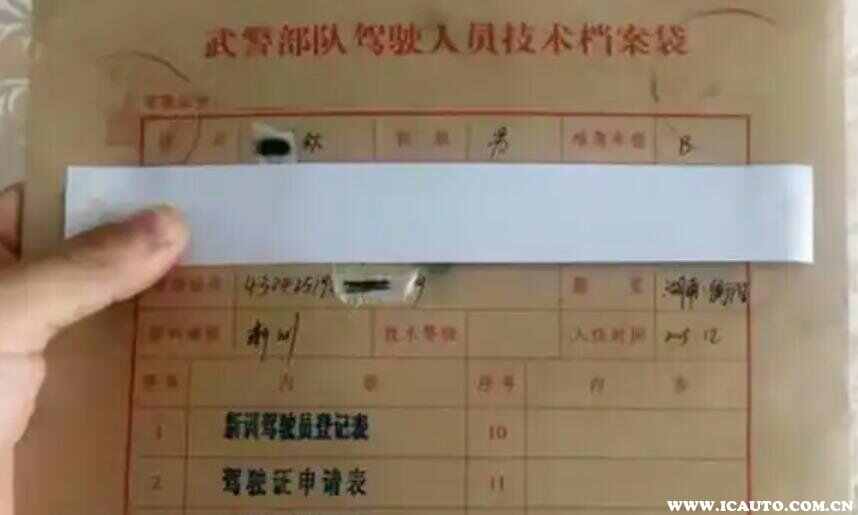 武警部队驾驶人员技术档案袋
姓名 钦 性别 男 准驾车型 B
43242519 9 籍贯 湖南
新训 技术等级 入伍时间 2005.12
序号 内容 序号 内容
1 新训驾驶员登记表 10
2 驾驶证申请表 11
WWW.ICAUTO.COM.CN